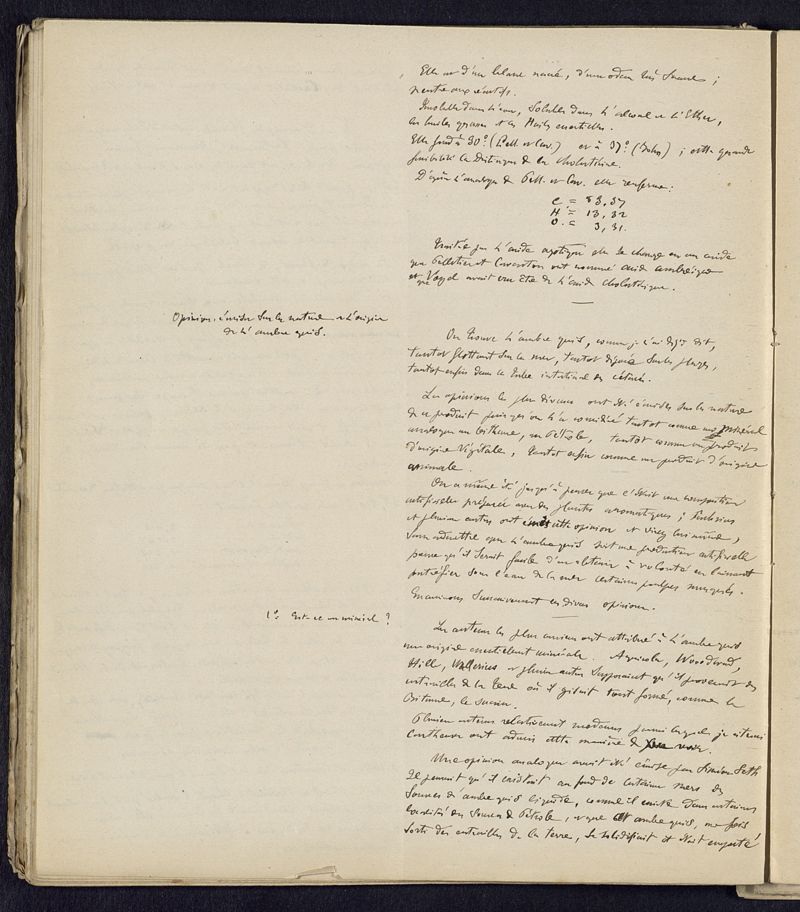 Elle est d'un blanc nacré, d'une odeur très suave ;
neutre aux réactifs.
Insoluble dans l'eau, soluble dans l'alcool et l'Ether,
les huiles grasses et les Huiles essentielles.
Elle fond à 30° (Pell. et Cav.) et à 37° (John) ; cette grande
fusibilité la distingue de la cholestérine.
D'après l'analyse de Pell. et Cav. elle renferme :
C = 83,37
H = 13,32
O = 3,31.
Traitée par l'acide azotique elle se change en un acide
que Pelletier et Caventou ont nommé acide ambréique
et que Vogel avait cru être de l'acide cholestérique.
Opinions émises sur la nature et l'origine
de l'ambre gris.
On trouve l'ambre gris, comme je l'ai déjà dit,
tantôt flottant sur la mer, tantôt déposé sur les plages,
tantôt enfin dans le tube intestinal des cétacés.
Les opinions les plus diverses ont été émises sur la nature
de ce produit puisqu'on l'a considéré tantôt comme un minéral
analogue au bitume, au Pétrole, tantôt comme un produit
d'origine végétale, tantôt enfin comme un produit d'origine
animale.
On a même été jusqu'à penser que c'était une composition
artificielle préparée avec des plantes aromatiques ;
et plusieurs autres ont émis cette opinion et Virey lui-même,
sans admettre que l'ambre gris soit une production artificielle
pense qu'il serait facile d'en obtenir à volonté en laissant
putréfier sous l'eau de la mer certains poulpes musqués.
Examinons successivement ces divers opinions.
1° Est-ce un minéral ?
Les auteurs les plus anciens ont attribué à l'ambre gris
une origine essentiellement minérale. Agricola, Woodward,
Hill, Wallerius et plusieurs autres supposaient qu'il provenait des
entrailles de la terre où il gisait tout formé, comme le
Bitume, le succin.
Plusieurs auteurs relativement modernes parmi lesquels je citerai
Cartheuser ont admis cette manière de voir.
Une opinion analogue avait été émise par Siméon Seth
Il pensait qu'il existait au fond de certaines mers des
sources d'ambre gris liquide, comme il existe dans certaines
localités des sources de Pétrole, et que cet ambre gris, une fois
sorti des entrailles de la terre, se solidifiait et était emporté